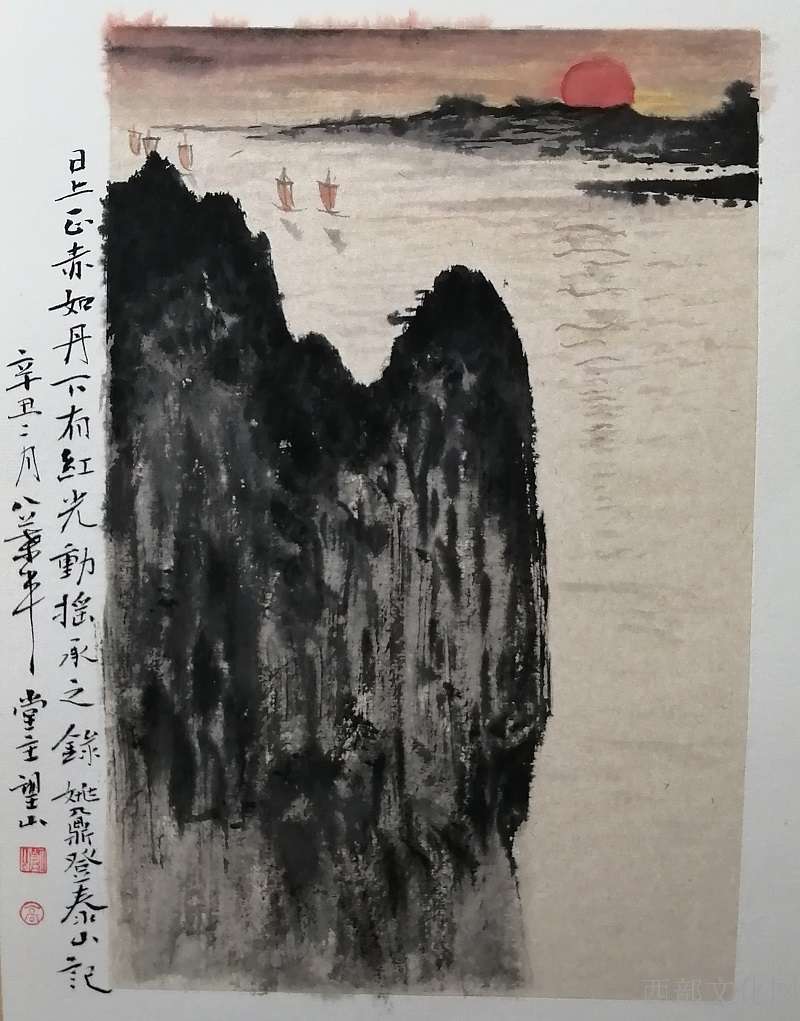 日上正赤如丹下有紅光動摇承之 錄姚鼐登泰山記
辛丑二月八葉半堂主望山
西部文化网